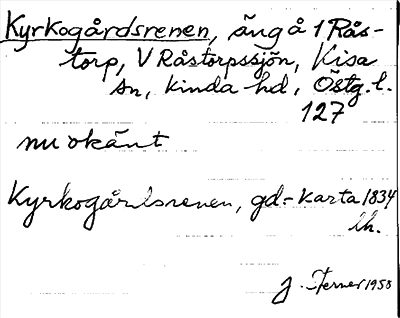 Kyrkogårdsrenen, äng å 1 Rås-
torp, V Råstorpssjön, Kisa
sn, Kinda hd, Östg. l.
127
nu okänt
Kyrkogårdsrenen, gd-karta 1834
lh.
J. Terner 1958